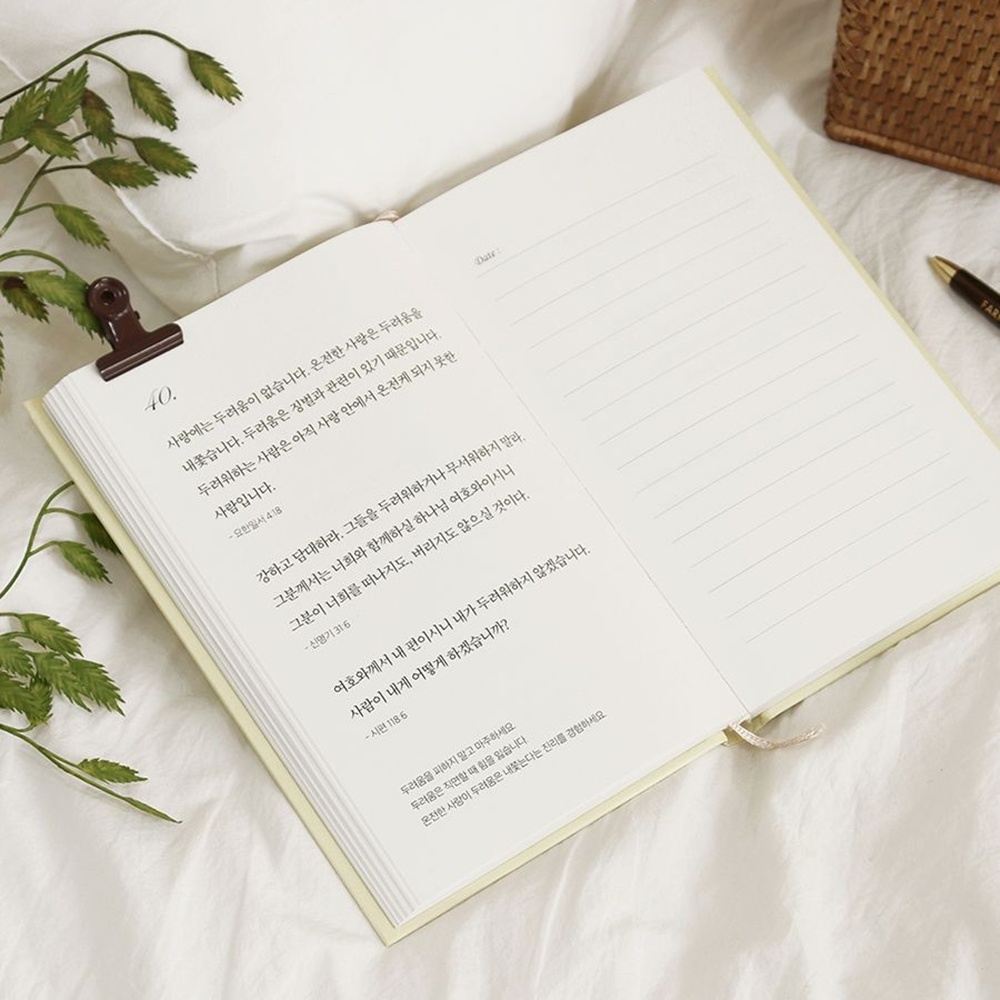 40.
사랑에는 두려움이 없습니다. 온전한 사랑은 두려움을
내쫓습니다. 두려움은 징벌과 관련이 있기 때문입니다.
두려워하는 사람은 아직 사랑 안에서 온전케 되지 못한
사람입니다.
- 요한일서 4:18
강하고 담대하라. 그들을 두려워하거나 무서워하지 말라.
그분께서는 너희와 함께하실 하나님 여호와이시니
그분이 너희를 떠나지도, 버리지도 않으실 것이다.
- 신명기 31:6
여호와께서 내 편이시니 내가 두려워하지 않겠습니다.
사람이 내게 어떻게 하겠습니까?
- 시편 118:6
두려움을 피하지 말고 마주하세요.
두려움은 직면할 때 힘을 잃습니다.
온전한 사랑이 두려움은 내쫓는다는 진리를 경험하세요
Date :
FAB